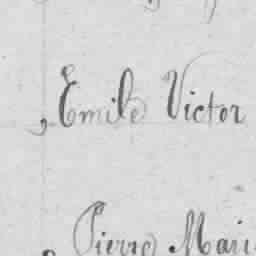 , Emile Victor
Pierre Mari